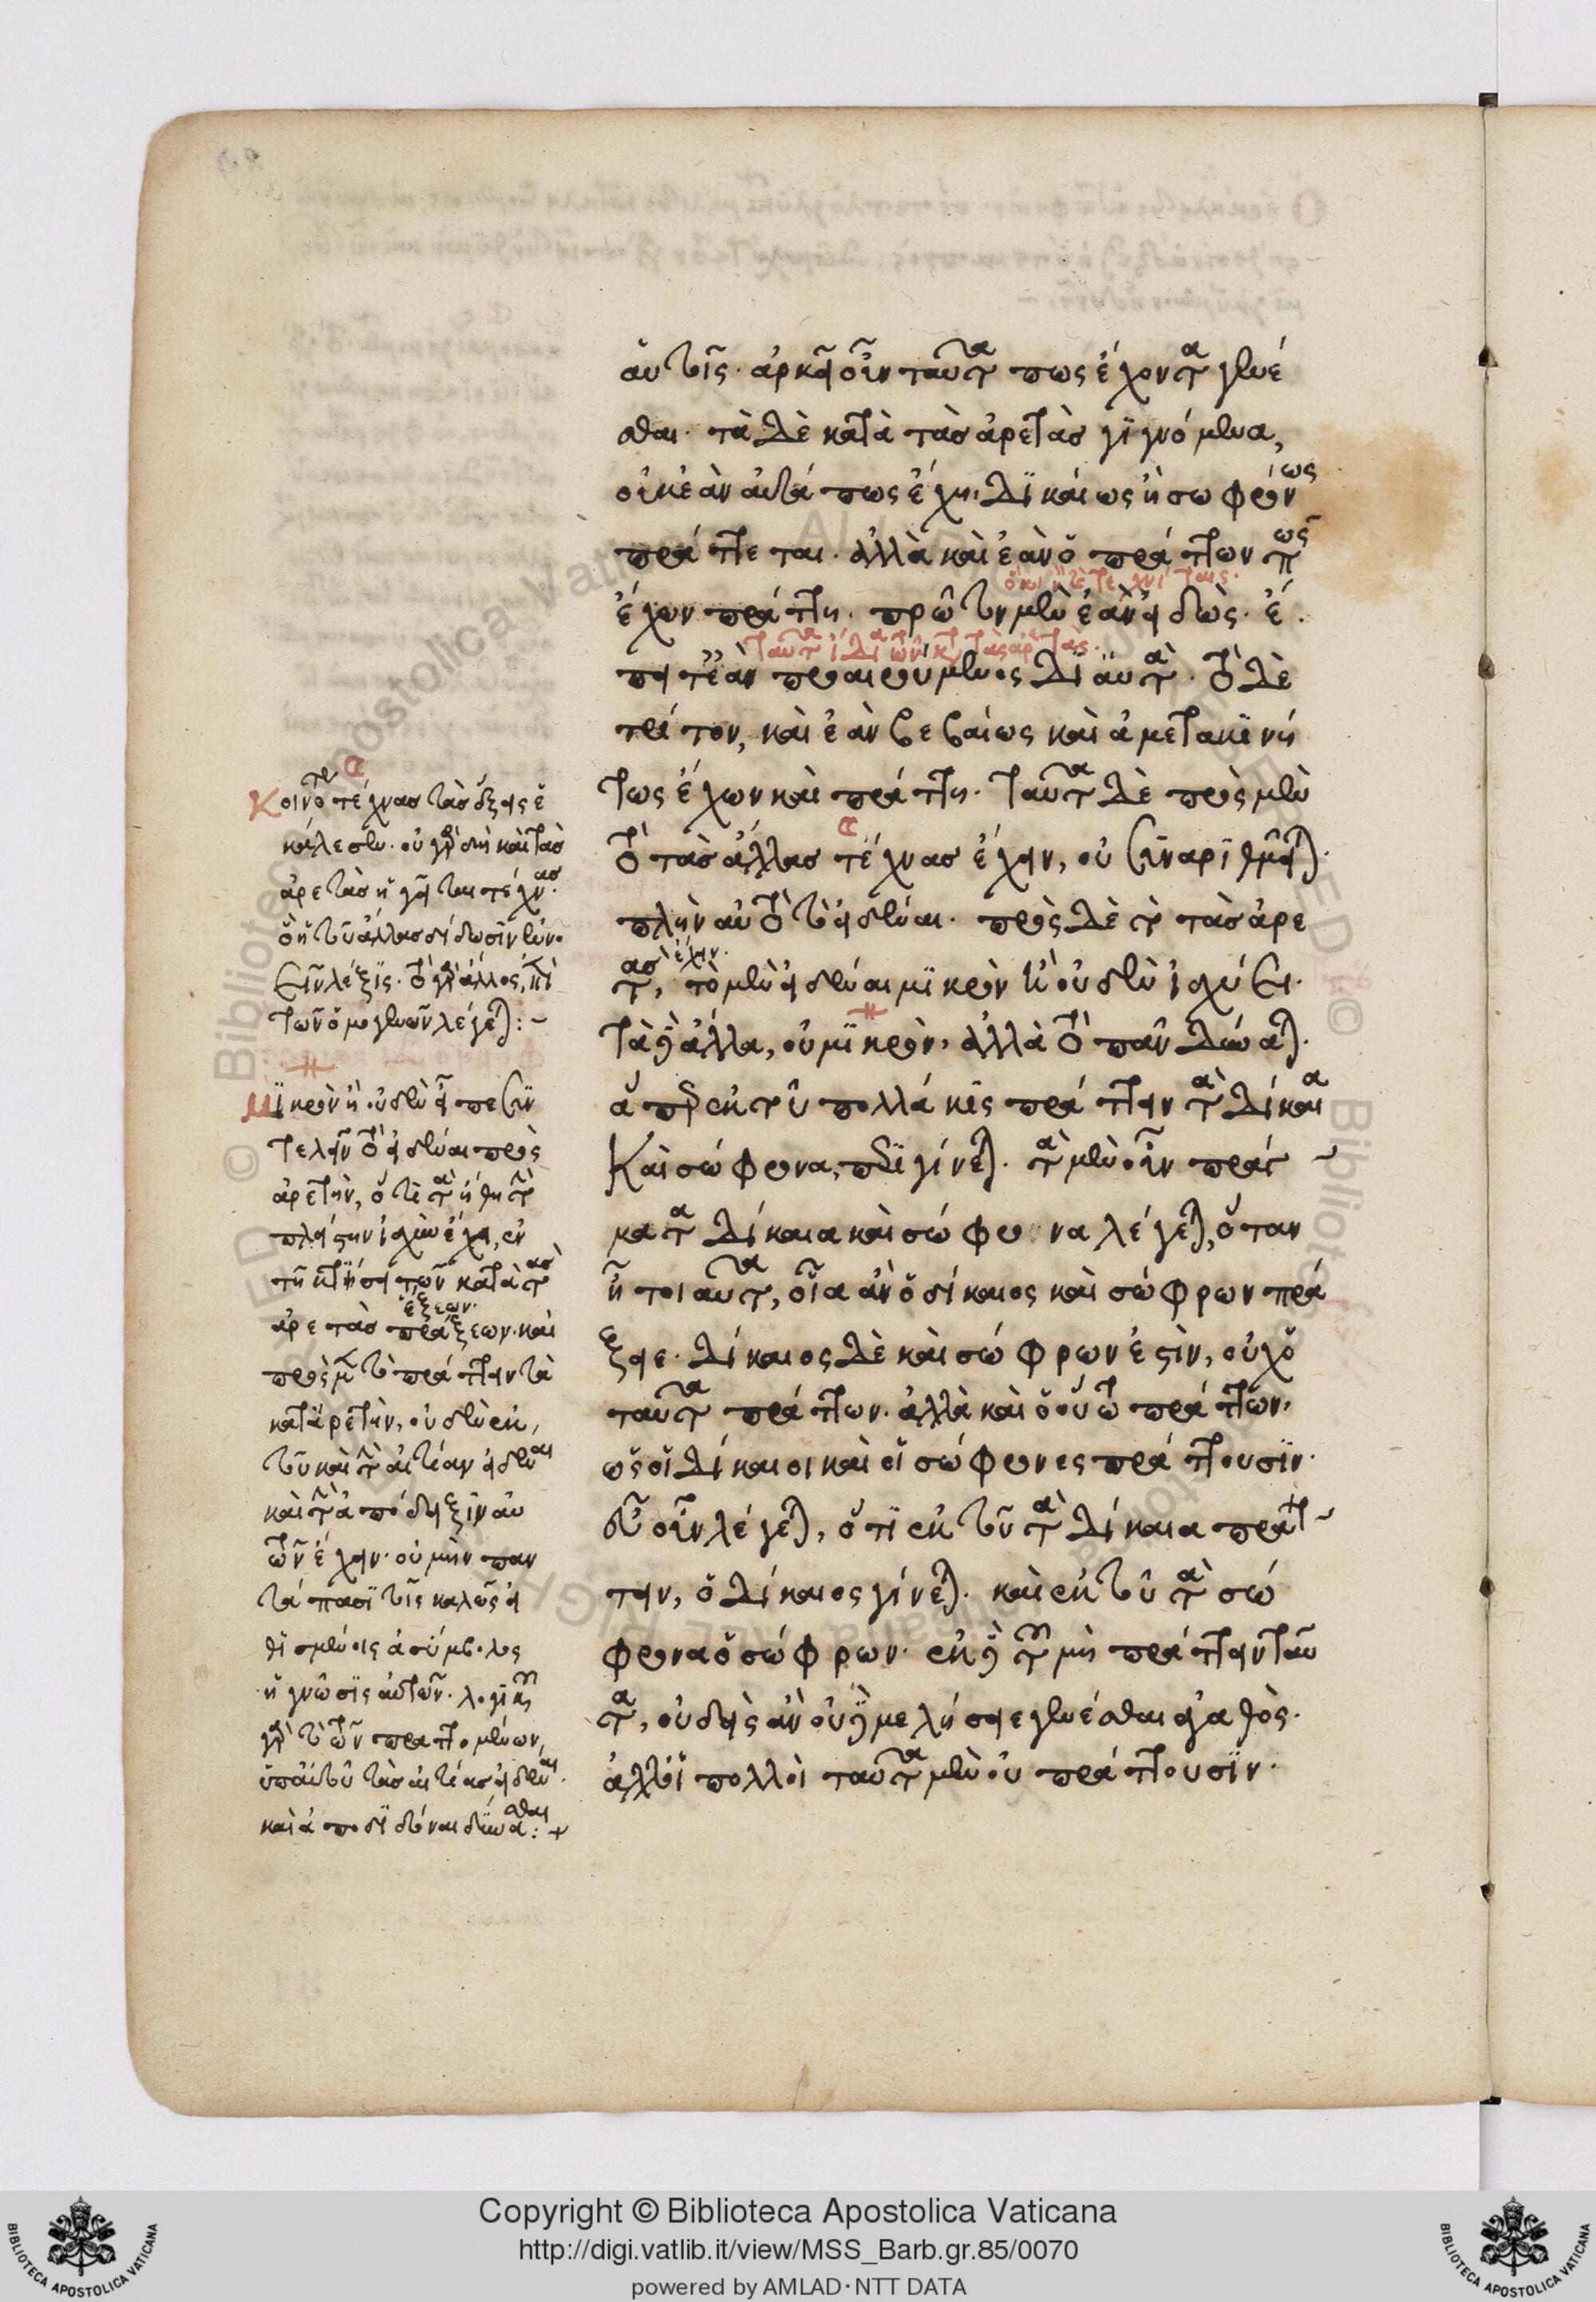 αὐτοῖς· ἀρκεῖ οὖν ταῦτα πως ἔχοντα γενέ
σθαι· τὰ δὲ κατὰ τὰς ἀρετὰς γιγνόμενα,
οὐκ ἐὰν αὐτά πως ἔχῃ, δικαίως ἢ σωφρόνως
πράττεται· ἀλλὰ καὶ ἐὰν ὁ πράττων πως
ἔχων πράττῃ· πρῶτον μὲν ἐὰν εἰδώς· ἔ
ταῦτα ἴδια τῶν κατὰ τὰς ἀρετάς·
πειτ' ἐὰν προαιρούμενος δι' αὐτά· τὸ δὲ
τρίτον, καὶ ἐὰν βεβαίως καὶ ἀμετακινή
τως ἔχων καὶ πράττῃ· ταῦτα δὲ πρὸς μὲν
τὸ τὰς ἄλλας τέχνας ἔχειν, οὐ συναριθμεῖται·
πλὴν αὐτὸ τὸ εἰδέναι· πρὸς δὲ τὸ τὰς ἀρε
τάς, ἔχειν τὸ μὲν εἰδέναι μικρὸν ἢ οὐδὲν ἰσχύει·
τὰ δ' ἄλλα, οὐ μικρὸν, ἀλλὰ τὸ πᾶν δύναται·
ἅπερ ἐκ τοῦ πολλάκις πράττειν τὰ δίκαια
καὶ σώφρονα, περιγίνεται· τὰ μὲν οὖν πράγ
ματα δίκαια καὶ σώφρονα λέγεται, ὅταν
ᾖ τοιαῦτα, οἷα ἂν ὁ δίκαιος καὶ σώφρων πρά
ξειε· δίκαιος δὲ καὶ σώφρων ἐστὶν, οὐχ ὁ
ταῦτα πράττων· ἀλλὰ καὶ ὁ οὕτω πράττων,
ὡς οἱ δίκαιοι καὶ οἱ σώφρονες πράττουσιν·
εὖ οὖν λέγεται, ὅτι ἐκ τοῦ τὰ δίκαια πράτ
τειν, ὁ δίκαιος γίνεται· καὶ ἐκ τοῦ τὰ σώ
φρονα ὁ σώφρων· ἐκ δὲ τοῦ μὴ πράττειν ταῦ
τα, οὐδεὶς ἂν οὐδὲ μελήσειε γενέσθαι ἀγαθὸς·
ἀλλ' οἱ πολλοὶ ταῦτα μὲν οὐ πράττουσιν·
Κοινότερον τέχνας τὰς ἕξεις ἐ
κάλεσεν· οὐ γὰρ δὴ καὶ τὰς
ἀρετὰς ἡγεῖται τέχνας·
ὃ ἡ τοῦ ἄλλας δίδωσιν ἐννο
εῖν λέξις· τὸ γὰρ ἄλλος, ἐπὶ
τῶν ὁμογενῶν λέγεται:~
Μικρὸν ἢ οὐδὲν εἶπε συν
τελεῖν τὸ εἰδέναι πρὸς
ἀρετὴν, ὅτι τὰ ἤθη τὴν
πλείστην ἰσχὺν ἔχει, ἐν
τῇ κτήσει τῶν κατὰ τὰς
ἕξεων·
ἀρετὰς πράξεων· καὶ
πρὸς μὲν τὸ πράττειν τὰ
κατ' ἀρετὴν, οὐδὲν ἐκ
τοῦ καὶ τὴν αἰτίαν εἰδέναι
καὶ τὴν ἀπόδειξιν αὐ
τῶν ἔχειν· οὐ μὴν παν
τάπασι τοῖς καλῶς εἰ
θισμένοις ἀσύμβολος
ἡ γνῶσις αὐτῶν· λογικῆς
γὰρ τὸ τῶν πραττομένων,
ὑπ' αὐτοῦ τὰς αἰτίας εἰδέναι·
καὶ ἀποδιδόναι δύνασθαι:+
Copyright © Biblioteca Apostolica Vaticana
http://digi.vatlib.it/view/MSS_Barb.gr.85/0070
powered by AMLAD·NTT DATA
BIBLIOTECA APOSTOLICA VATICANA
BIBLIOTECA APOSTOLICA VATICANA